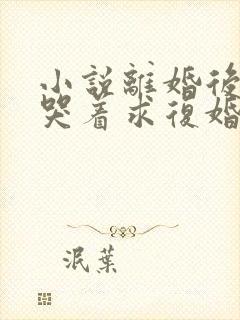 小說離婚後
哭着求復婚
泯葉